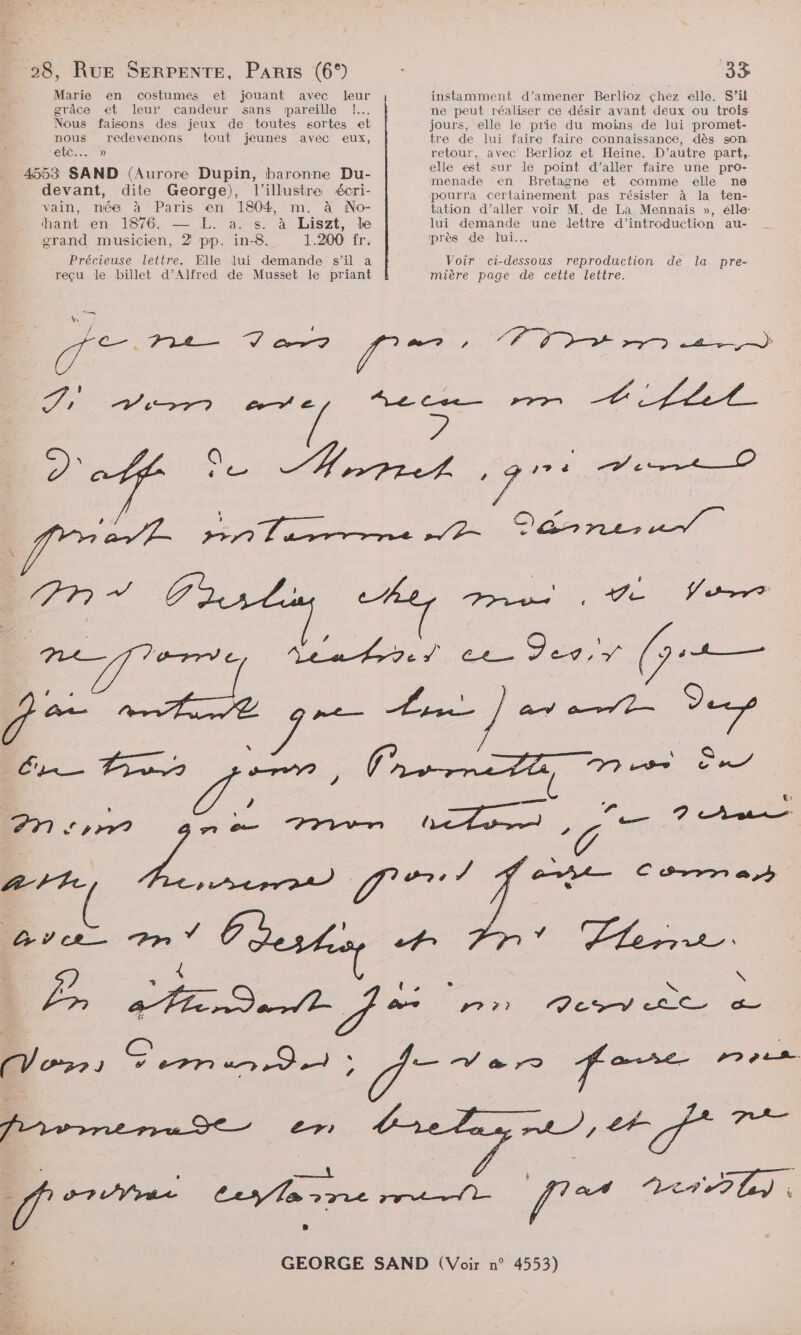 28, RUE SERPENTE, PARIS (6e)
33
Marie en costumes et jouant avec leur
grâce et leur candeur sans pareille !...
Nous faisons des jeux de toutes sortes et
nous redevenons tout jeunes avec eux,
etc... »
4553 SAND (Aurore Dupin, baronne Du-
devant, dite George), l'illustre écri-
vain, née à Paris en 1804, m. à No-
hant en 1876. — L. a. s. à Liszt, le
grand musicien, 2 pp. in-8. 1.200 fr.
Précieuse lettre. Elle lui demande s'il a
reçu le billet d'Alfred de Musset le priant
instamment d'amener Berlioz chez elle. S'il
ne peut réaliser ce désir avant deux ou trois
jours, elle le prie du moins de lui promet-
tre de lui faire faire connaissance, dès son
retour, avec Berlioz et Heine. D'autre part,
elle est sur le point d'aller faire une pro-
menade en Bretagne et comme elle ne
pourra certainement pas résister à la ten-
tation d'aller voir M. de La Mennais », elle
lui demande une lettre d'introduction au-
près de lui...
Voir ci-dessous reproduction de la pre-
mière page de cette lettre.
je ne sais pas, Monsieur
si vous avez reçu un billet
d'alf. de Musset, qui vous
priait instamment d'amener
Mr Berlioz chez moi. Si vous
ne pouvez réaliser ce desir (que
j'ai autant que lui) avant deux
ou trois jours, Promettez moi du
moins qu'à mon retour, je serai
assez heureuse pour faire connais
avec mr Berlioz et mr Heine.
En attendant j'ai un service à
vous demander; je vais faire une
promenade en bretagne, et je ne
pourrai certainement pas résister
GEORGE SAND (Voir n° 4553)